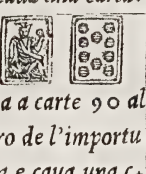 a a carte 90 al
ro de l'importu
a e caua una c